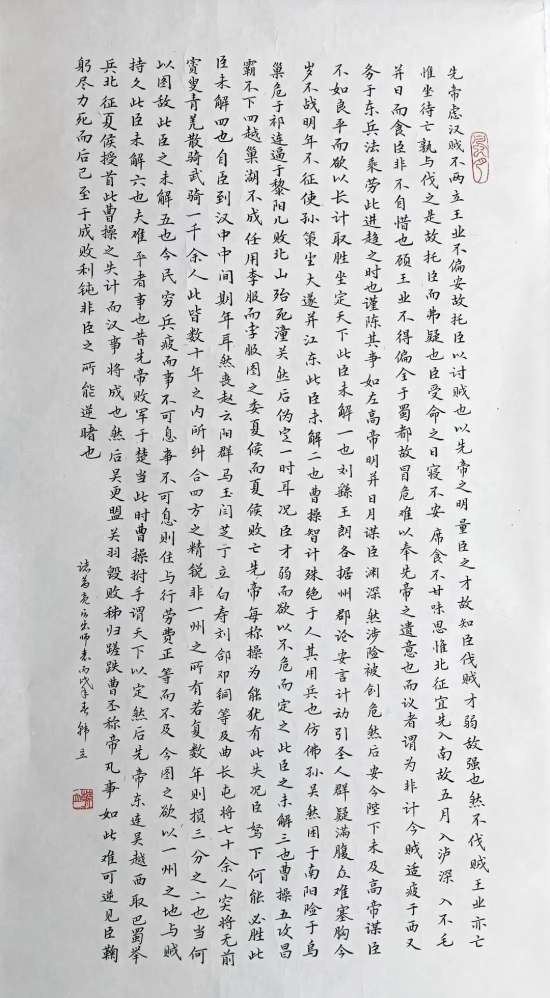 先帝虑汉贼不两立王业不偏安故托臣以讨贼也以先帝之明量臣之才故知臣伐贼才弱敌强也然不伐贼王业亦亡
惟坐待亡孰与伐之是故托臣而弗疑也臣受命之日寝不安席食不甘味思惟北征宜先入南故五月入泸深入不毛
并日而食臣非不自惜也顾王业不得偏全于蜀都故冒危难以奉先帝之遗意也而议者谓为非计今贼适疲于西又
务于东兵法乘劳此进趋之时也谨陈其事如左高帝明并日月谋臣渊深然涉险被创危然后安今陛下未及高帝谋臣
不如良平而欲以长计取胜坐定天下此臣未解一也刘繇王朗各据州郡论安言计动引圣人群疑满腹众难塞胸今
岁不战明年不征使孙策坐大遂并江东此臣未解二也曹操智计殊绝于人其用兵也仿佛孙吴然困于南阳险于乌
巢危于祁连逼于黎阳几败北山殆死潼关然后伪定一时耳况臣才弱而欲以不危而定之此臣之未解三也曹操五攻昌
霸不下四越巢湖不成任用李服而李服图之委夏侯而夏侯败亡先帝每称操为能犹有此失况臣驽下何能必胜此
臣未解四也自臣到汉中中间期年耳然丧赵云阳群马玉闫芝丁立白寿刘郃邓铜等及曲长屯将七十余人突将无前
賨叟青羌散骑武骑一千余人此皆数十年之内所纠合四方之精锐非一州之所有若复数年则损三分之二也当何
以图敌此臣之未解五也今民穷兵疲而事不可息事不可息则住与行劳费正等而不及今图之欲以一州之地与贼
持久此臣未解六也夫难平者事也昔先帝败军于楚当此时曹操拊手谓天下以定然后先帝东连吴越西取巴蜀举
兵北征夏侯授首此曹操之失计而汉事将成也然后吴更盟关羽毁败秭归蹉跌曹丕称帝凡事如此难可逆见臣鞠
躬尽力死而后已至于成败利钝非臣之所能逆睹也
诸葛亮后出师表丙戌年春韩立